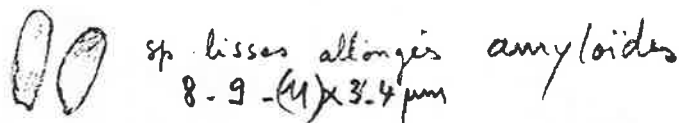 sp lisses allongés amyloïdes
8-9-(11)x3-4 µm